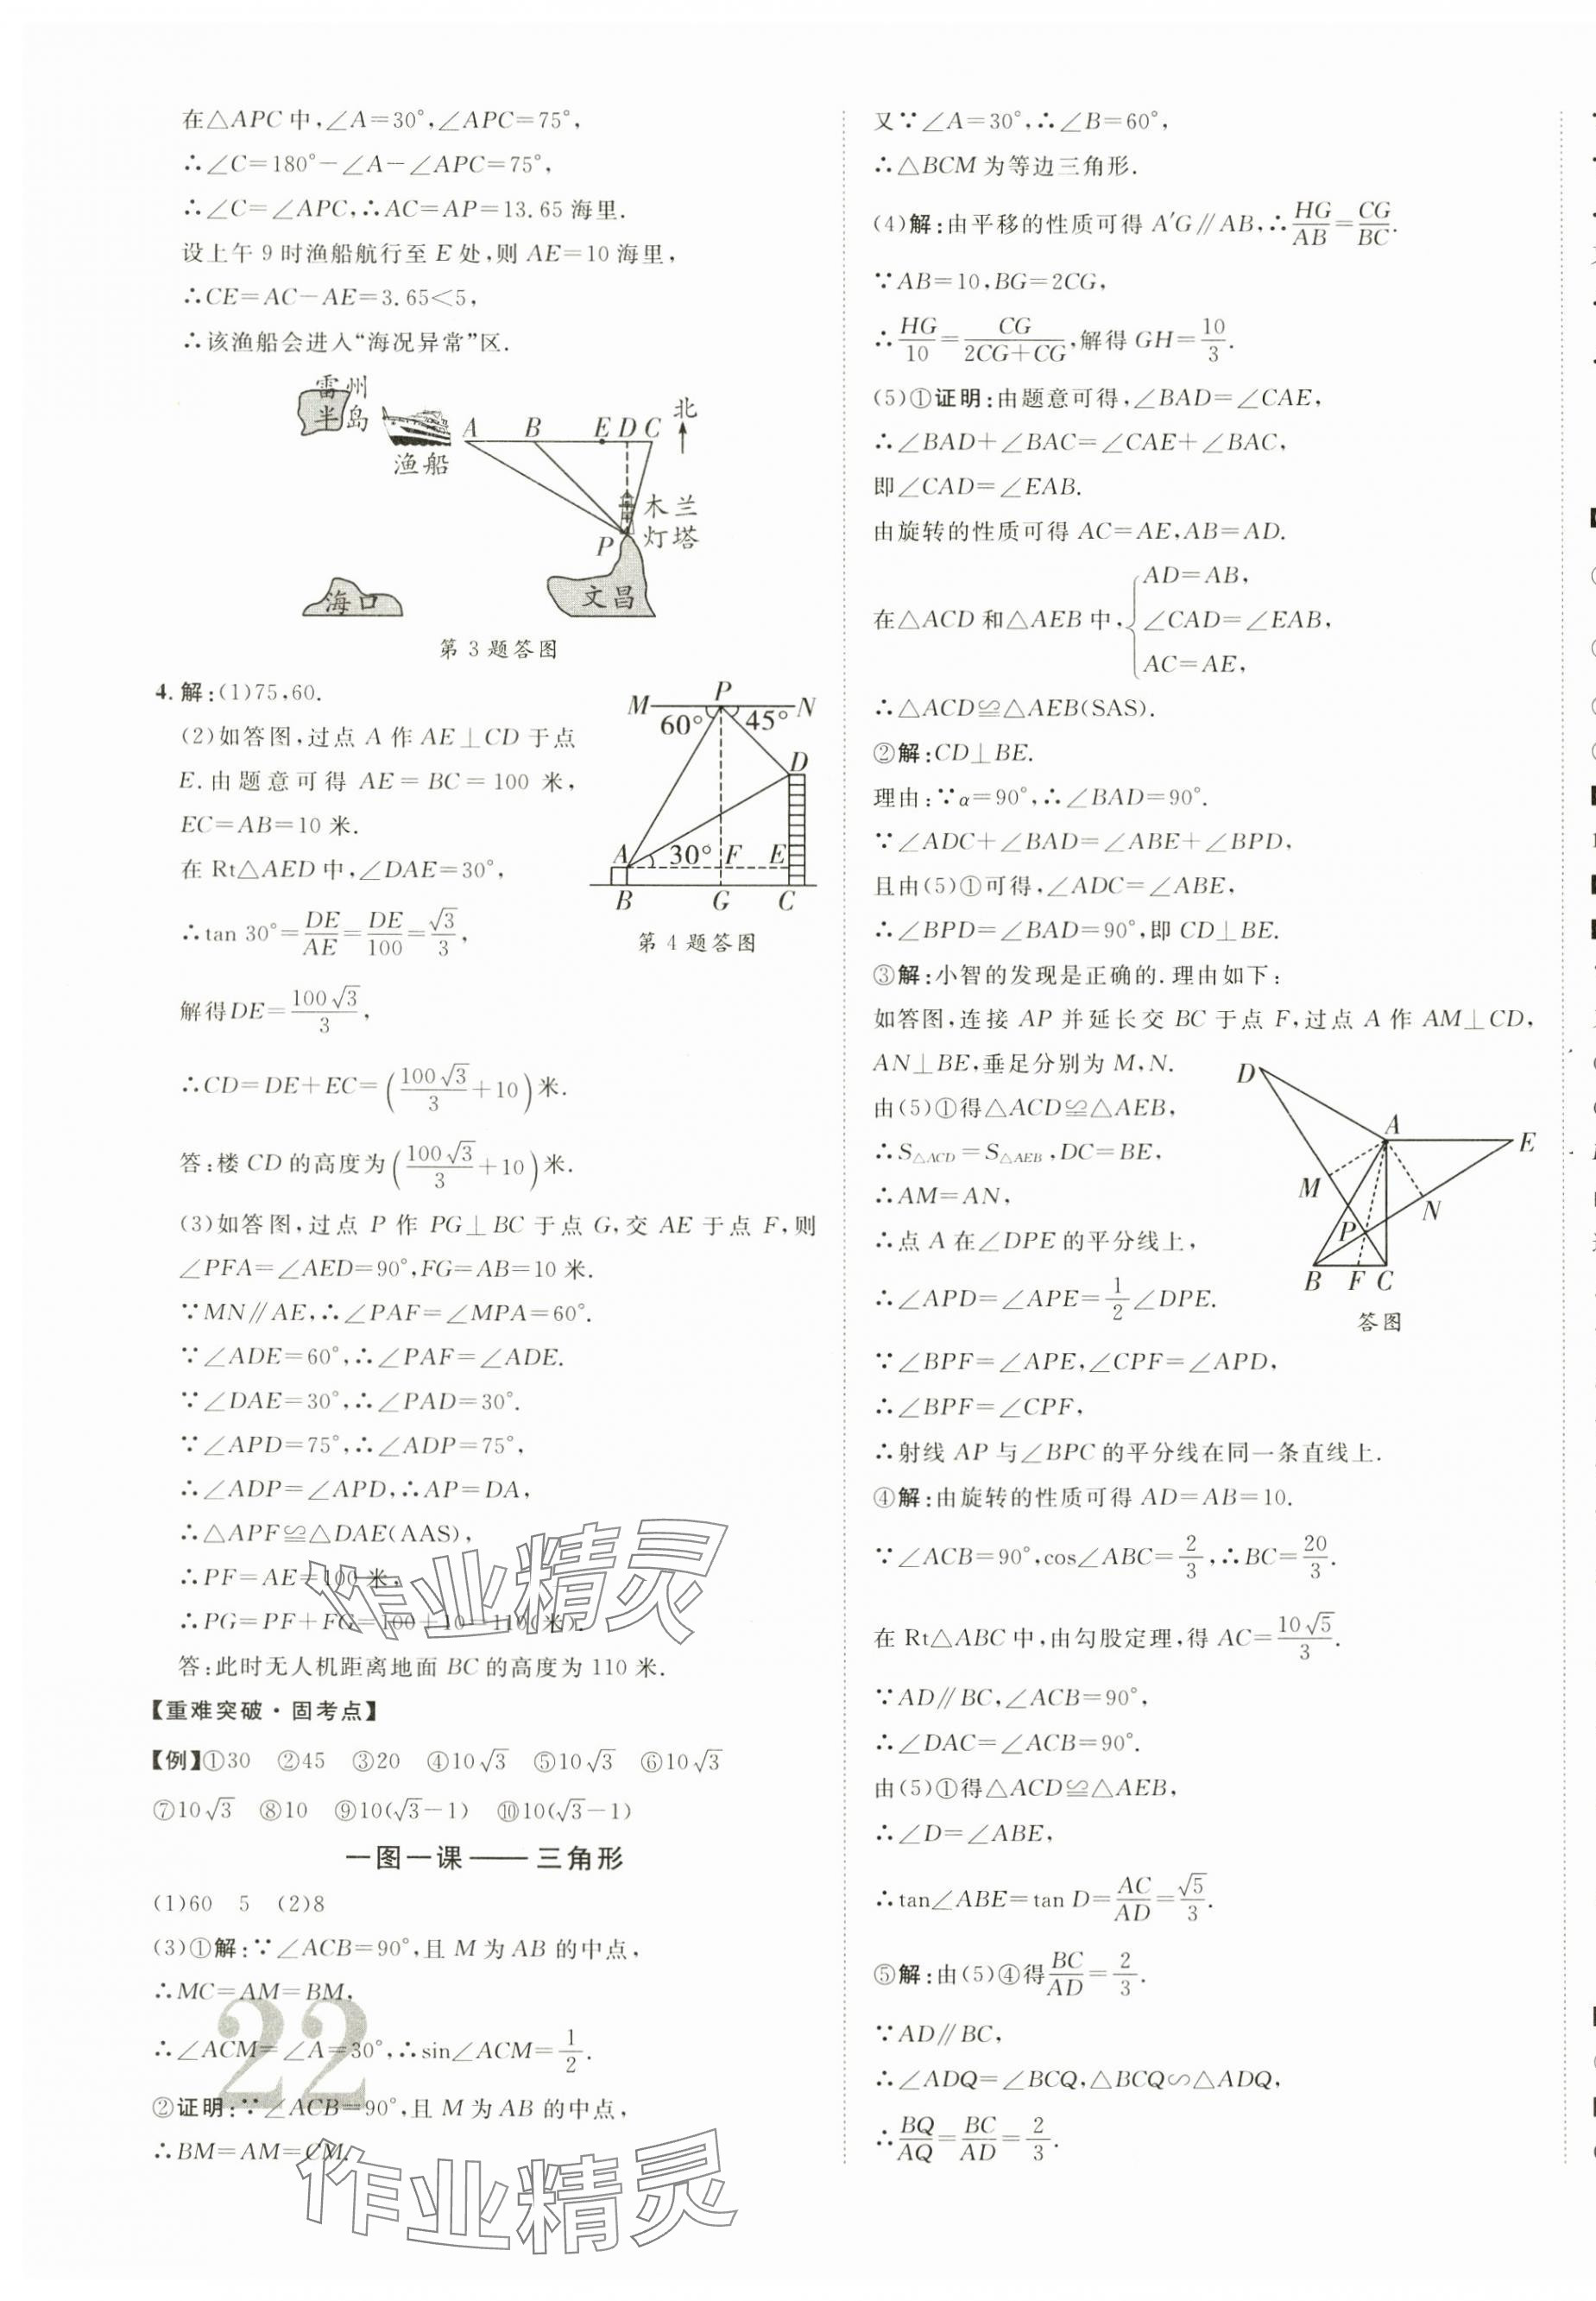 在△APC中,∠A=30°,∠APC=75°,
∴∠C=180°-∠A-∠APC=75°,
∴∠C=∠APC,∴AC=AP=13.65海里.
设上午9时渔船航行至E处,则AE=10海里,
∴CE=AC-AE=3.65<5,
∴该渔船会进入“海况异常”区.
雷州
半岛
渔船
A B E D C 北
木兰
灯塔
P
海口
文昌
第3题答图
4.解:(1)75,60.
(2)如答图,过点A作AE⊥CD于点
E.由题意可得AE=BC=100米,
EC=AB=10米.
在Rt△AED中,∠DAE=30°,
∴tan 30°=DE/AE=DE/100=√3/3,
解得DE=100√3/3,
M P N
60° 45°
D
A 30° F E
B G C
第4题答图
∴CD=DE+EC=(100√3/3+10)米.
答:楼CD的高度为(100√3/3+10)米.
(3)如答图,过点P作PG⊥BC于点G,交AE于点F,则
∠PFA=∠AED=90°,FG=AB=10米.
∵MN∥AE,∴∠PAF=∠MPA=60°.
∵∠ADE=60°,∴∠PAF=∠ADE.
∵∠DAE=30°,∴∠PAD=30°.
∵∠APD=75°,∴∠ADP=75°,
∴∠ADP=∠APD,∴AP=DA,
∴△APF≌△DAE(AAS),
∴PF=AE=100米,
∴PG=PF+FG=100+10=110(米).
答:此时无人机距离地面BC的高度为110米.
【重难突破·固考点】
【例】①30 ②45 ③20 ④10√3 ⑤10√3 ⑥10√3
⑦10√3 ⑧10 ⑨10(√3-1) ⑩10(√3-1)
一图一课——三角形
(1)60 5 (2)8
(3)①解:∵∠ACB=90°,且M为AB的中点,
∴MC=AM=BM,
∴∠ACM=∠A=30°,∴sin∠ACM=1/2.
②证明:∵∠ACB=90°,且M为AB的中点,
∴BM=AM=CM.
22
作业精灵
作业精灵
又∵∠A=30°,∴∠B=60°,
∴△BCM为等边三角形.
(4)解:由平移的性质可得A′G∥AB,∴HG/AB=CG/BC.
∵AB=10,BG=2CG,
∴HG/10=CG/(2CG+CG),解得GH=10/3.
(5)①证明:由题意可得,∠BAD=∠CAE,
∴∠BAD+∠BAC=∠CAE+∠BAC,
即∠CAD=∠EAB.
由旋转的性质可得AC=AE,AB=AD.
在△ACD和△AEB中,{AD=AB,
∠CAD=∠EAB,
AC=AE,
∴△ACD≌△AEB(SAS).
②解:CD⊥BE.
理由:∵α=90°,∴∠BAD=90°.
∵∠ADC+∠BAD=∠ABE+∠BPD,
且由(5)①可得,∠ADC=∠ABE,
∴∠BPD=∠BAD=90°,即CD⊥BE.
③解:小智的发现是正确的.理由如下:
如答图,连接AP并延长交BC于点F,过点A作AM⊥CD,
AN⊥BE,垂足分别为M,N.
由(5)①得△ACD≌△AEB,
∴S△ACD=S△AEB,DC=BE,
∴AM=AN,
∴点A在∠DPE的平分线上,
∴∠APD=∠APE=1/2∠DPE.
D
A
E
M
N
P
B F C
答图
∵∠BPF=∠APE,∠CPF=∠APD,
∴∠BPF=∠CPF,
∴射线AP与∠BPC的平分线在同一条直线上.
④解:由旋转的性质可得AD=AB=10.
∵∠ACB=90°,cos∠ABC=2/3,∴BC=20/3.
在Rt△ABC中,由勾股定理,得AC=10√5/3.
∵AD∥BC,∠ACB=90°,
∴∠DAC=∠ACB=90°.
由(5)①得△ACD≌△AEB,
∴∠D=∠ABE,
∴tan∠ABE=tan D=AC/AD=√5/3.
⑤解:由(5)④得BC/AD=2/3.
∵AD∥BC,
∴∠ADQ=∠BCQ,△BCQ∽△ADQ,
∴BQ/AQ=BC/AD=2/3.